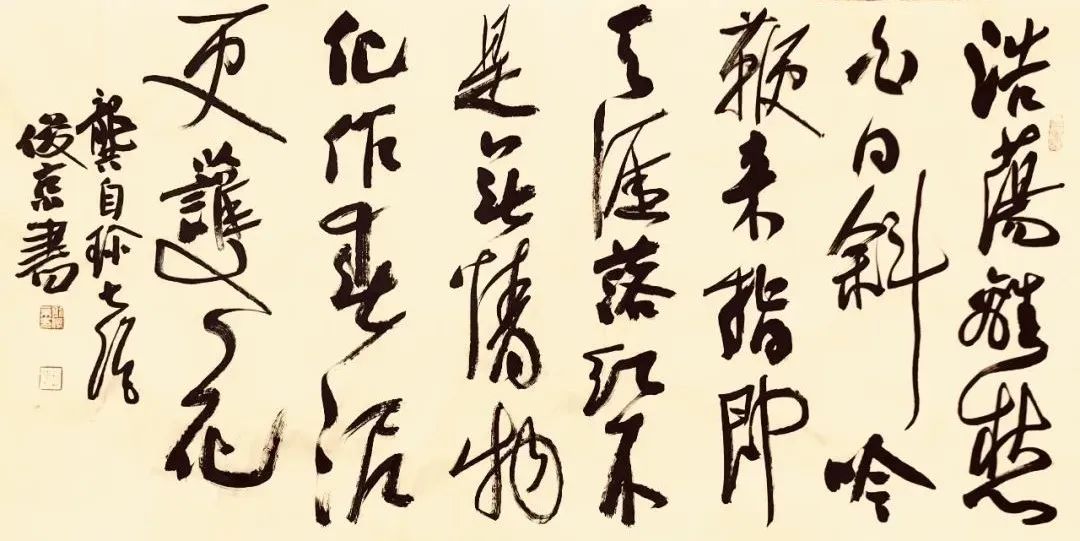 浩蕩離愁
白日斜吟
鞭東指即
天涯落紅不
是無情物
化作春泥
更護花
龔自珍七絕
俊京書